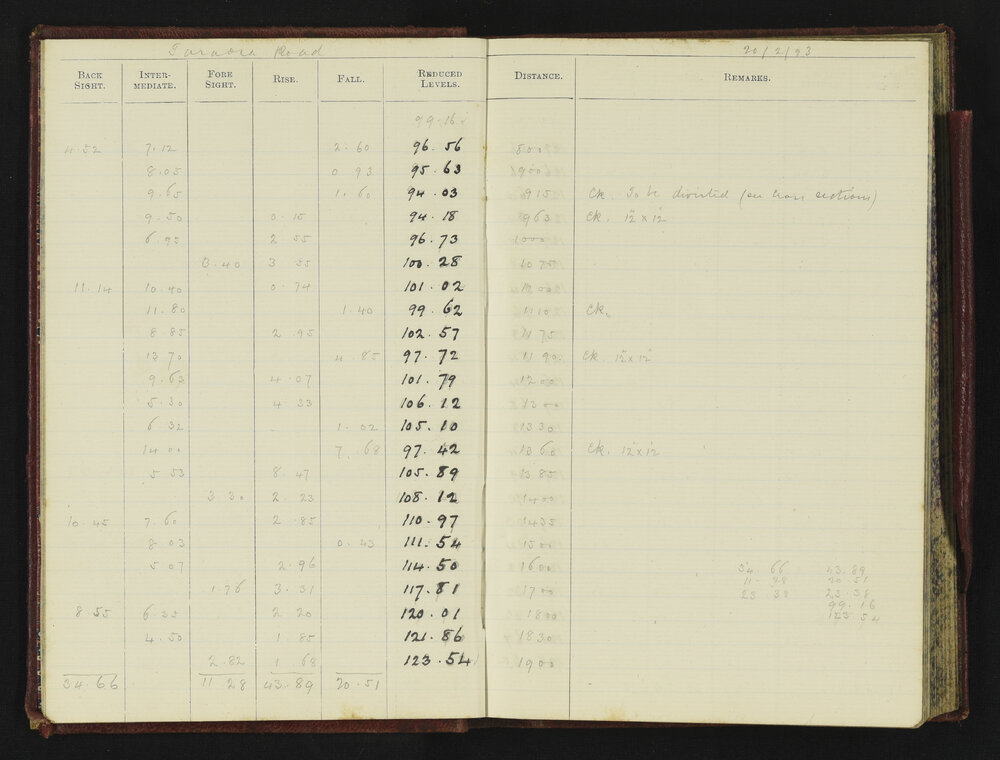 Road 20/2/93
BACK SIGHT. INTER-MEDIATE. FORE SIGHT. RISE. FALL. REDUCED LEVELS. DISTANCE. REMARKS.
99.16
4.52 7.12 2.60 96.56 800
8.05 0.93 95.63 900
9.65 1.60 94.03 915 Ck. To be diverted (on cross sections)
9.50 0.15 94.18 963 Ck. 12" x 12"
6.95 2.55 96.73 1000
3.40 3.55 100.28 1075
11.14 10.40 0.74 101.02
11.80 1.40 99.62 1110 Ck.
8.85 2.95 102.57 1175
13.70 4.85 97.72 1190 Ck. 12" x 12"
9.63 4.07 101.79 1200
5.30 4.33 106.12 1300
6.32 1.02 105.10 1330
14.00 7.68 97.42 1360 Ck. 12" x 12"
5.53 8.47 105.89 1385
3.30 2.23 108.12 1400
10.45 7.60 2.85 110.97 1435
8.03 0.43 111.54 1500
5.07 2.96 114.50 1600
34.66 43.89
1.76 3.31 117.81 1700
11.28 20.51
23.38 23.38
8.55 6.35 2.20 120.01 1800
99.16
123.54
4.50 1.85 121.86 1830
2.82 1.68 123.54 1900
34.66 11.28 43.89 20.51